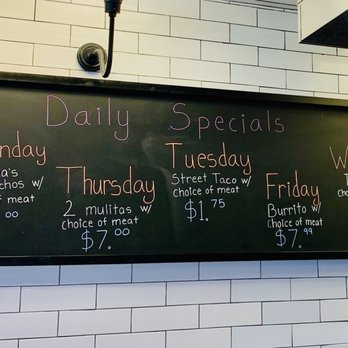 Daily Specials
nday
a's
chos w/
of meat
00
Thursday
2 mulitas w/
choice of meat
$7.00
Tuesday
Street Taco w/
choice of meat
$1.75
Friday
Burrito w/
choice of meat
$7.99
W
T
choi